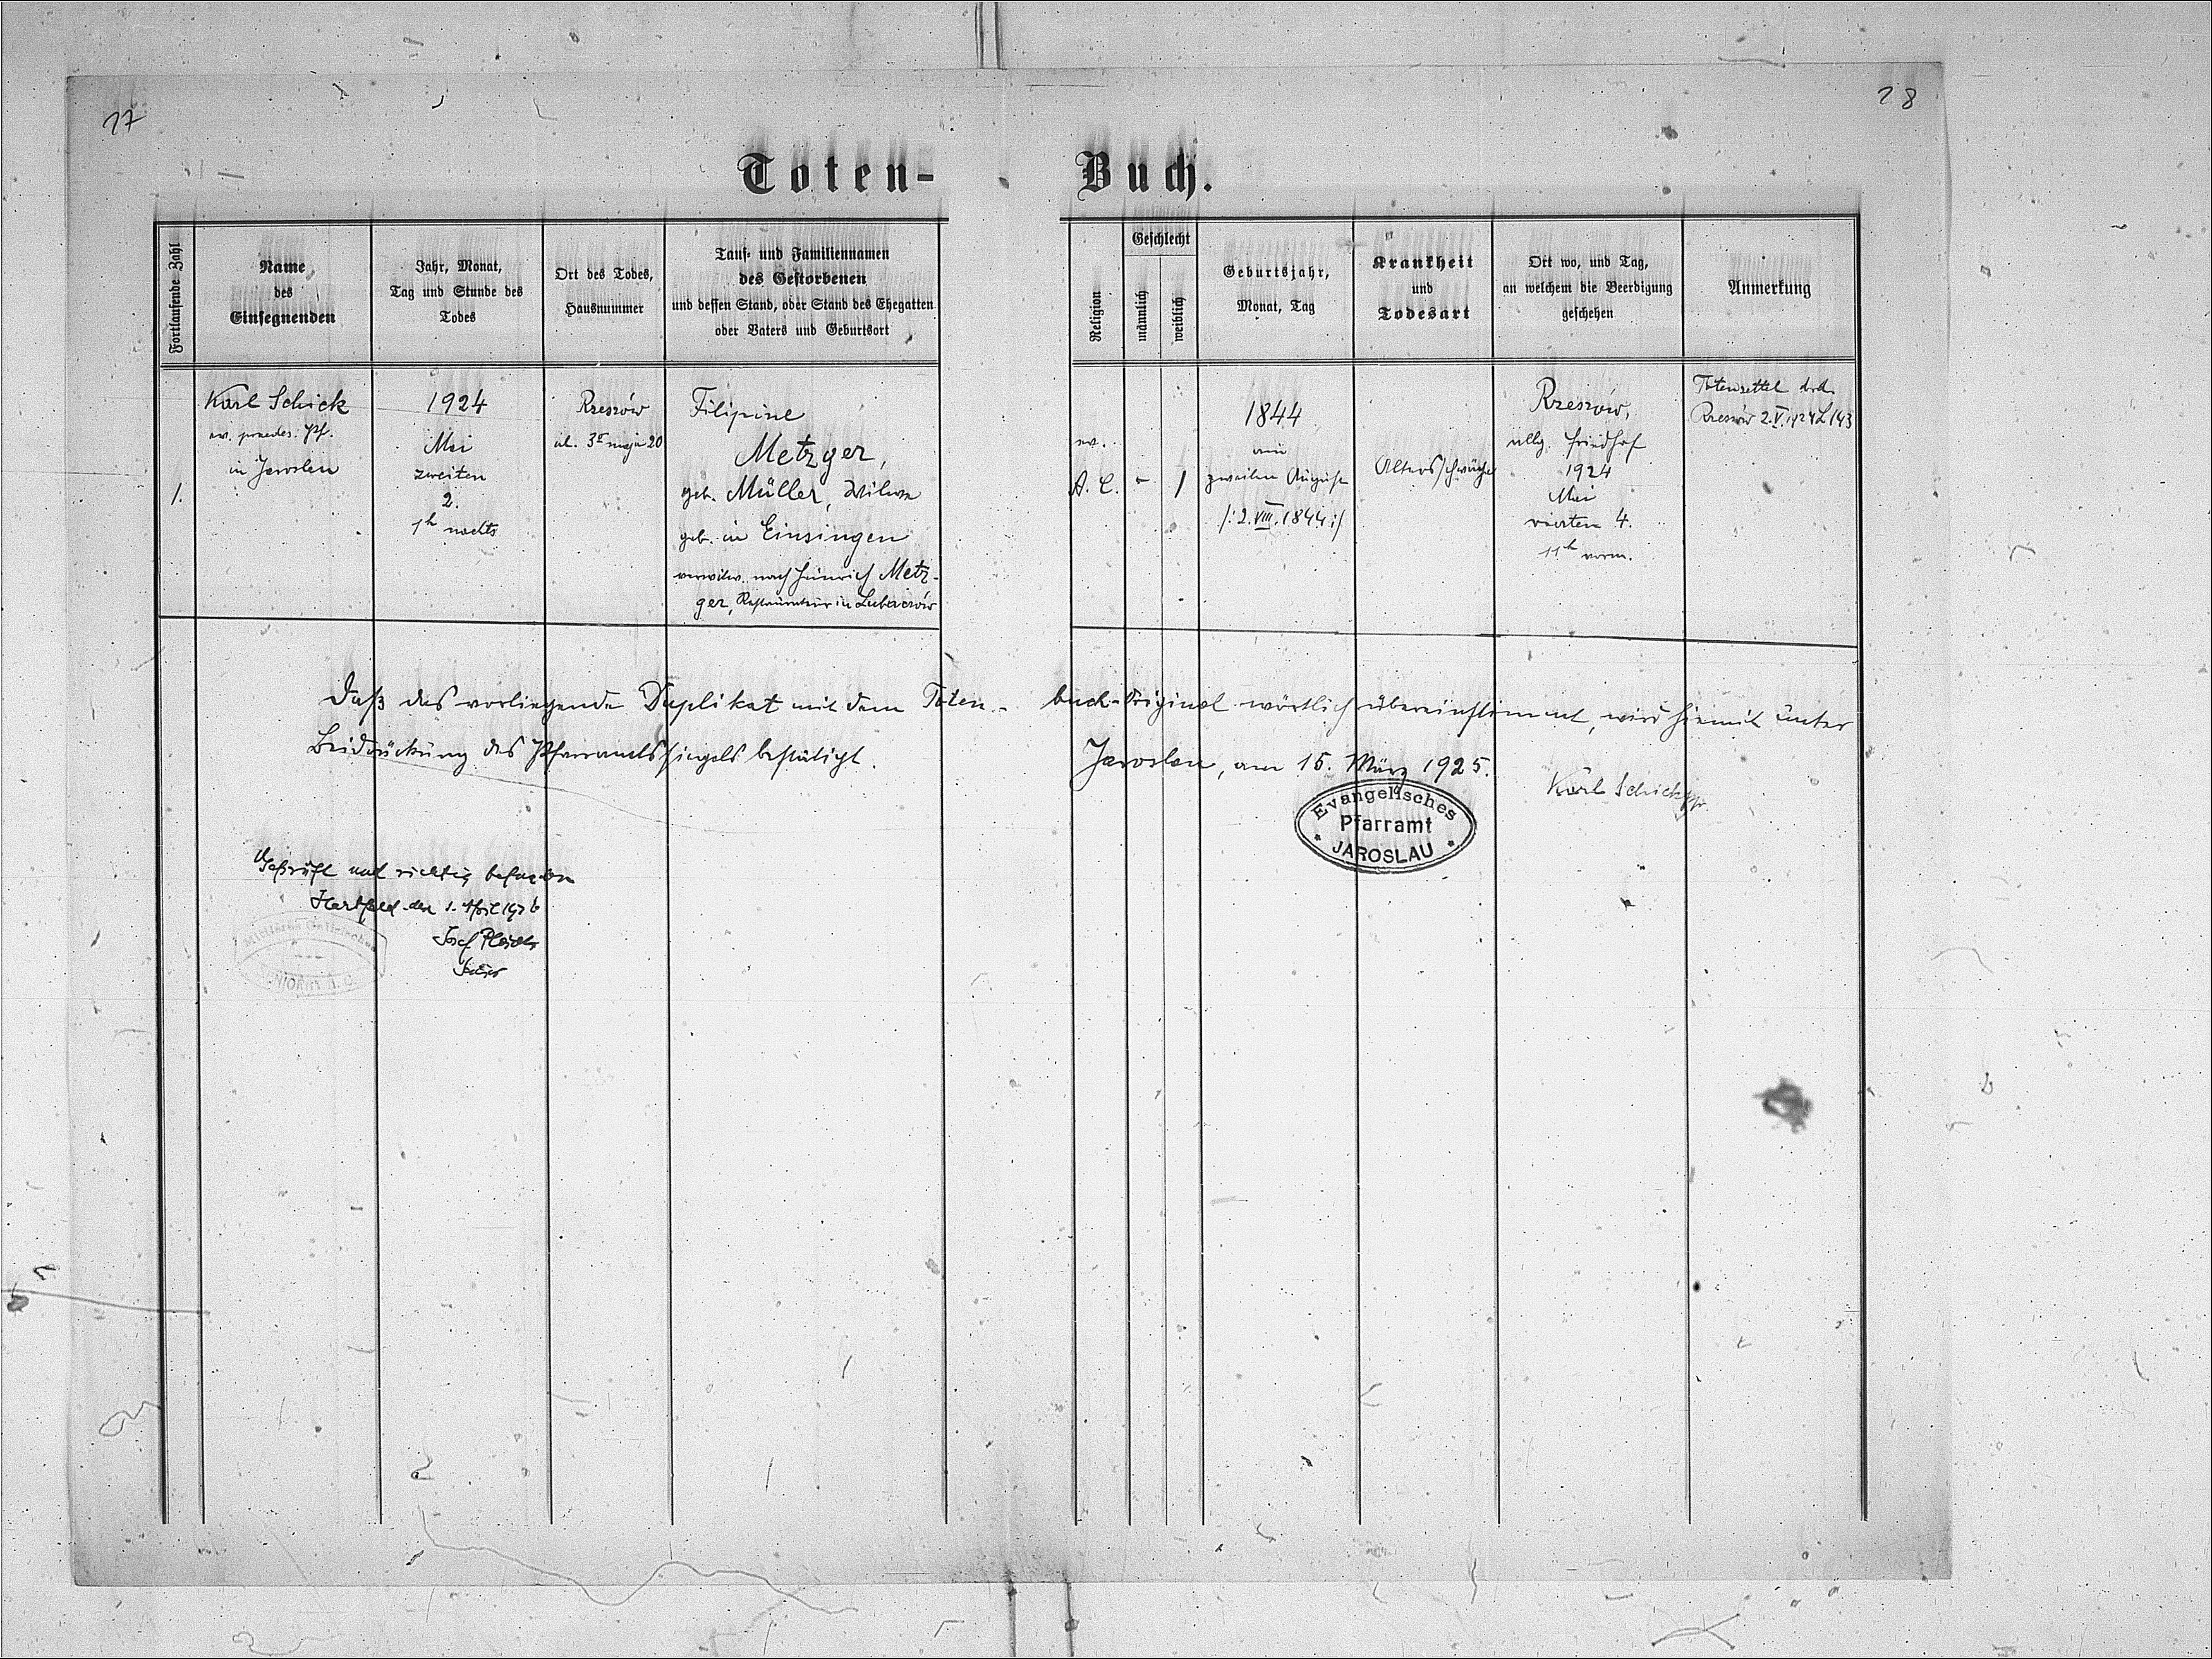 27
28
Toten-
Buch.
Fortlaufende Zahl
Name
des
Einsegnenden
Jahr, Monat,
Tag und Stunde des
Todes
Ort des Todes,
Hausnummer
Tauf- und Familiennamen
des Gestorbenen
und dessen Stand, oder Stand des Ehegatten
oder Vaters und Geburtsort
Religion
Geschlecht
männlich
weiblich
Geburtsjahr,
Monat, Tag
Krankheit
und
Todesart
Ort wo, und Tag,
an welchem die Beerdigung
geschehen
Anmerkung
1.
Karl Schick
ev. Pf.
in Jaroslau
1924
Mai
zweiten
2.
1h nachts
Rzeszów
ul. 3go maja 20
Filipine
Metzger,
geb. Müller, Witwe
geb. in Einsingen
verwitw. nach Heinrich Metz-
ger, Restaurateur in Lubaczów
ev.
A. C.
-
1
1844
am
zweiten August
/: 2. VIII. 1844 :/
Altersschwäche
Rzeszów,
allg. Friedhof
1924
Mai
vierten 4.
11h vorm.
Totenzettel dtd.
Rzeszów 2.V.1924 L 143
Daß das vorliegende Duplikat mit dem Toten-
buch-Original wörtlich übereinstimmt, wird hiemit unter
Beidrückung des Pfarramtssiegels bestätigt.
Jaroslau, am 15. März 1925.
Karl Schick Pfr.
Evangelisches
Pfarramt
JAROSLAU
Geprüft und richtig befunden
Hartfeld den 1. April 1926
Josef
Senior
Mittleres Galizisches
SENIORAT A. C.